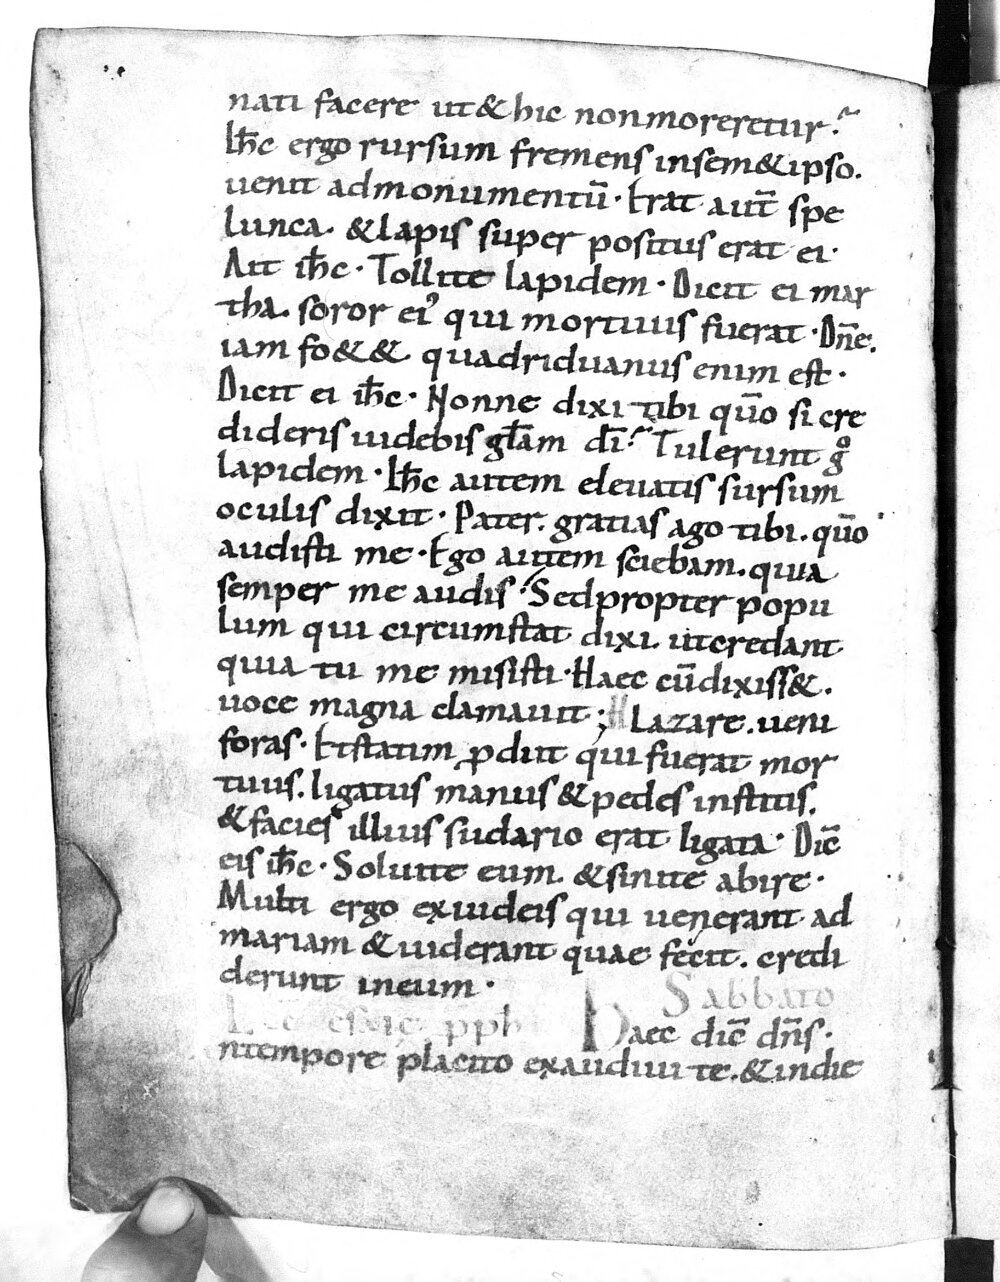 nati facere ut & hic non moreretur.
Ih̄c ergo rursum fremens insem&ipso.
uenit ad monumentū. Erat aut̄ spe
lunca. & lapis super positus erat ei.
Ait ih̄c. Tollite lapidem. Dicit ei mar
tha. soror ei᾽ qui mortuus fuerat. Dn̄e.
iam fo&& quadriduanus enim est.
Dicit ei ih̄c. Nonne dixi tibi qūo si cre
dideris uidebis gl̄am dī. Tulerunt gº
lapidem. Ih̄c autem eleuatis sursum
oculis dixit. Pater. gratias ago tibi. qūo
audisti me. Ego autem sciebam. quia
semper me audis. Sed propter popu
lum qui circumstat dixi. ut credant
quia tu me misisti. Haec cū dixiss&.
uoce magna clamauit; Lazare. ueni
foras. Et statim ꝓdiit qui fuerat mor
tuus. ligatus manus & pedes institis.
& facies illius sudario erat ligata. Dic̄
eis ih̄c. Soluite eum. & sinite abire.
Multi ergo ex iudeis qui uenerant ad
mariam & uiderant quae fecit. credi
derunt in eum.
Sabbato
pph
Haec dic̄ dn̄s.
ntempore placito exaudiui te. & indie